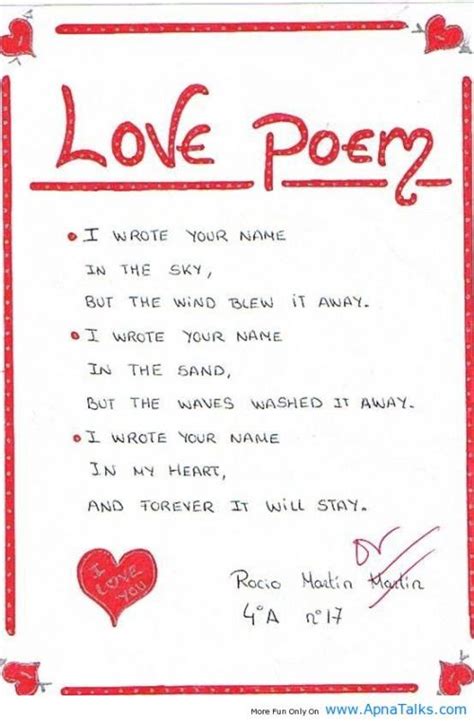 Love Poem
• I WROTE YOUR NAME
IN THE SKY,
BUT THE WIND BLEW IT AWAY.
• I WROTE YOUR NAME
IN THE SAND,
BUT THE WAVES WASHED IT AWAY.
• I WROTE YOUR NAME
IN MY HEART,
AND FOREVER IT WILL STAY.
I LOVE YOU
Rocio Martin Martin
4ºA nº17
More Fun Only On www.ApnaTalks.com